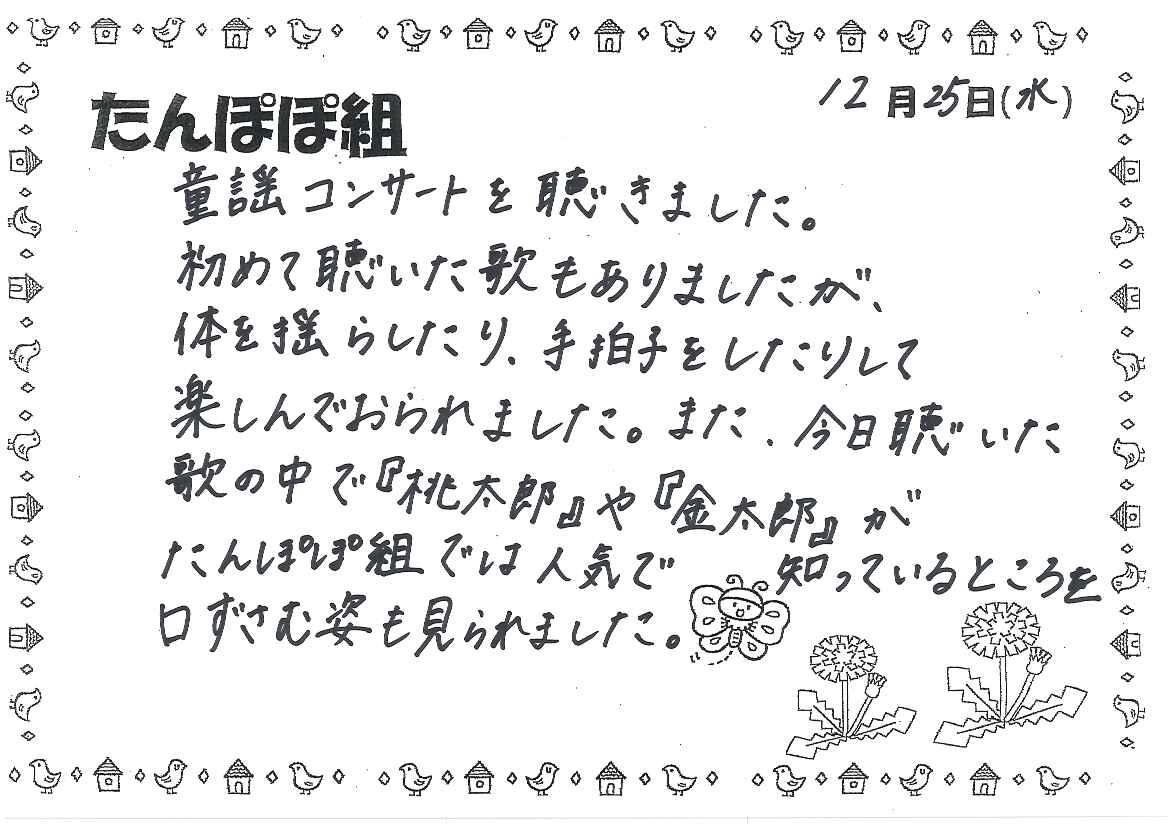 12月25日(水)
たんぽぽ組
童謡コンサートを聴きました。
初めて聴いた歌もありましたが、
体を揺らしたり、手拍子をしたりして
楽しんでおられました。また、今日聴いた
歌の中で『桃太郎』や『金太郎』が
たんぽぽ組では人気で 知っているところを
口ずさむ姿も見られました。